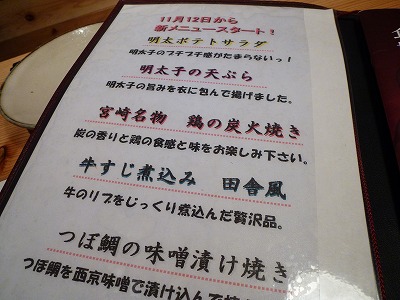 11月12日から
新メニュースタート！
明太ポテトサラダ
明太子のプチプチ感がたまらないっ！
明太子の天ぷら
明太子の旨みを衣に包んで揚げました。
宮崎名物　鶏の炭火焼き
炭の香りと鶏の食感と味をお楽しみ下さい。
牛すじ煮込み　田舎風
牛のリブをじっくり煮込んだ贅沢品。
つぼ鯛の味噌漬け焼き
つぼ鯛を西京味噌で漬け込んで